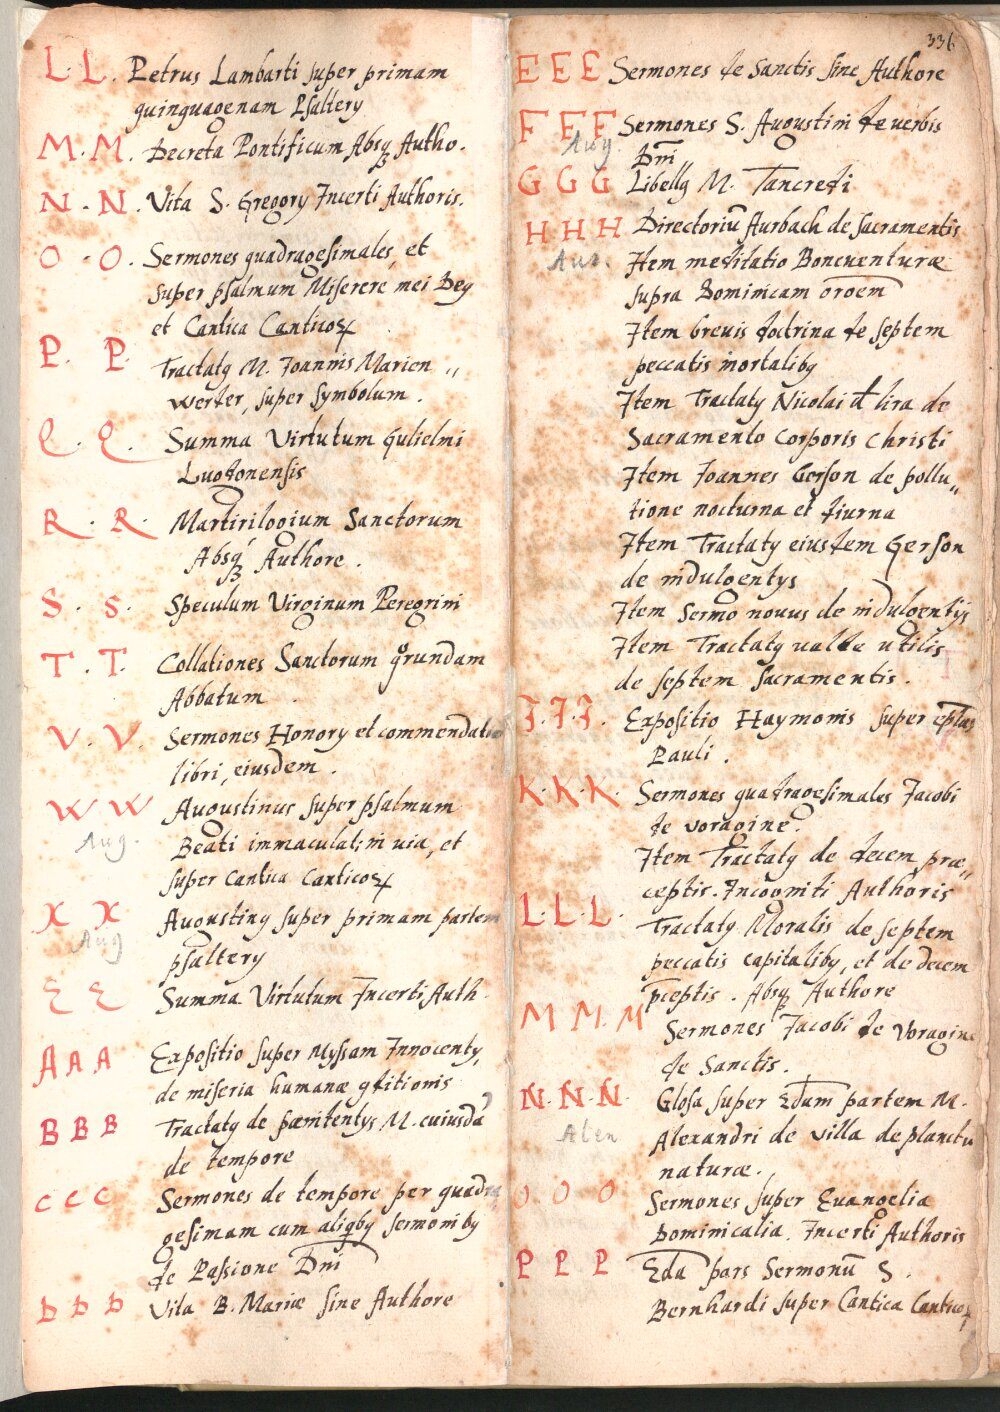 L. L. Petrus Lambarti super primam
quinquagenam Psaltery
M. M. Decreta Pontificum Absqꝫ Autho.
N. N. Vita S. Gregory Incerti Authoris.
O. O. Sermones quadragesimales, et
super psalmum Miserere mei Deꝰ
et Cantica Canticoꝝ
P. P. Tractatꝰ M. Joannis Marien„
werder, super symbolum.
Q. Q. Summa Virtutum Gulielmi
Lugdonensis
R. R. Martirilogium Sanctorum
Absqꝫ Authore.
S. S. Speculum Virginum Peregrini
T. T. Collationes Sanctorum quorundam
Abbatum.
V. V. Sermones Honory et commendatio
libri, eiusdem.
W W Augustinus super psalmum
Aug. Beati immaculat: in uia, et
super Cantica Canticoꝝ
X X Augustinꝰ super primam partem
Aug psaltery
Summa Virtutum Incerti Auth.
A A A Expositio super Myssam Innocenty,
de miseria humanæ ꝯditionis
B B B Tractatꝰ de pænitentys M. cuiusdā
de tempore
C C C Sermones de tempore per quadra
gesimam cum aliqbꝰ sermonibꝰ
de Passione Dni
D D D Vita B. Mariæ sine Authore
336
E E E Sermones de Sanctis sine Authore
F F F Sermones S. Augustini de verbis
Aug. Dni„
G G G Libellꝰ M. Tancredi
H H H Directoriū Aurbach de sacramentis
Aur. Item meditatio Boneuenturæ
supra Dominicam oroem
Item breuis doctrina de septem
peccatis mortalibꝰ
Item Tractatꝰ Nicolai d lira de
Sacramento Corporis Christi
Item Joannes Gerson de pollu„
tione nocturna et diurna
Item Tractatꝰ eiusdem Gerson
de indulgentys
Item Sermo nouus de indulgentijs
Item Tractatꝰ ualde utilis
de septem sacramentis.
J. J. J. Expositio Haymonis super eplas
Pauli.
K. K. K. Sermones quadragesimales Jacobi
de voragine.
Item Tractatꝰ de decem præ„
ceptis. Incogniti Authoris
L. L. L. Tractatꝰ Moralis de septem
peccatis capitalibꝰ, et de decem
pceptis. Absqꝫ Authore
M M. M Sermones Jacobi de Voragine
de Sanctis.
N. N. N. Glosa super 2dam partem M.
Alen Alexandri de villa de planctu
naturæ.
O O O Sermones super Euangelia
Dominicalia. Incerti Authoris
P P P 2da pars Sermonū S.
Bernhardi super Cantica Canticoꝝ